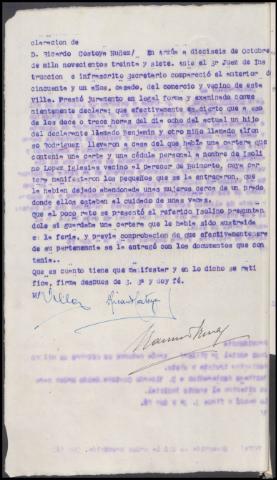 claracion de
D. Ricardo Costoya Nuñez/ En Arzúa a dieciseis de Octubre
de mil novecientos treinta y siete. ante el Sr Juez de Ins
truccion e infrascrito Secretario compareció el anterior de
cincuenta y un años, casado, del comercio y vecino de este
ville. Prestó juramento en legal forma y examinado conve
nientemente declara: que efectivamente es digrto que a eso
de los doce o trece horas del dia ocho del actual un hijo
del declarante llamado Benjamin y otro niño llamado Alfon
so Rodriguez llevaron a casa del que habla una cartera que
contenia una carta y una cédula personal a nombre de Isoli
no Lopez Iglesias vecino el parecer de Boimorto, cuya car
tera manifestaron los pequeños que se la entregaron, que
la habian dejado abandonada unas mujeres cerca de un prado
donde ellos estaban al cuidado de unas vacas.
que al poco rato se presentó el referido Isolino preguntan
dole si guardaba una cartera que le habia sido sustraida
en la feria, y previa comprobacion de que efectivamente era
de su pertenencia se la entregó con los documentos que con
tenia..
que es cuanto tiene que manifestar y en lo dicho se rati
fica, firma despues de S. Sª y doy fé.
Villar Ricardo Costoya